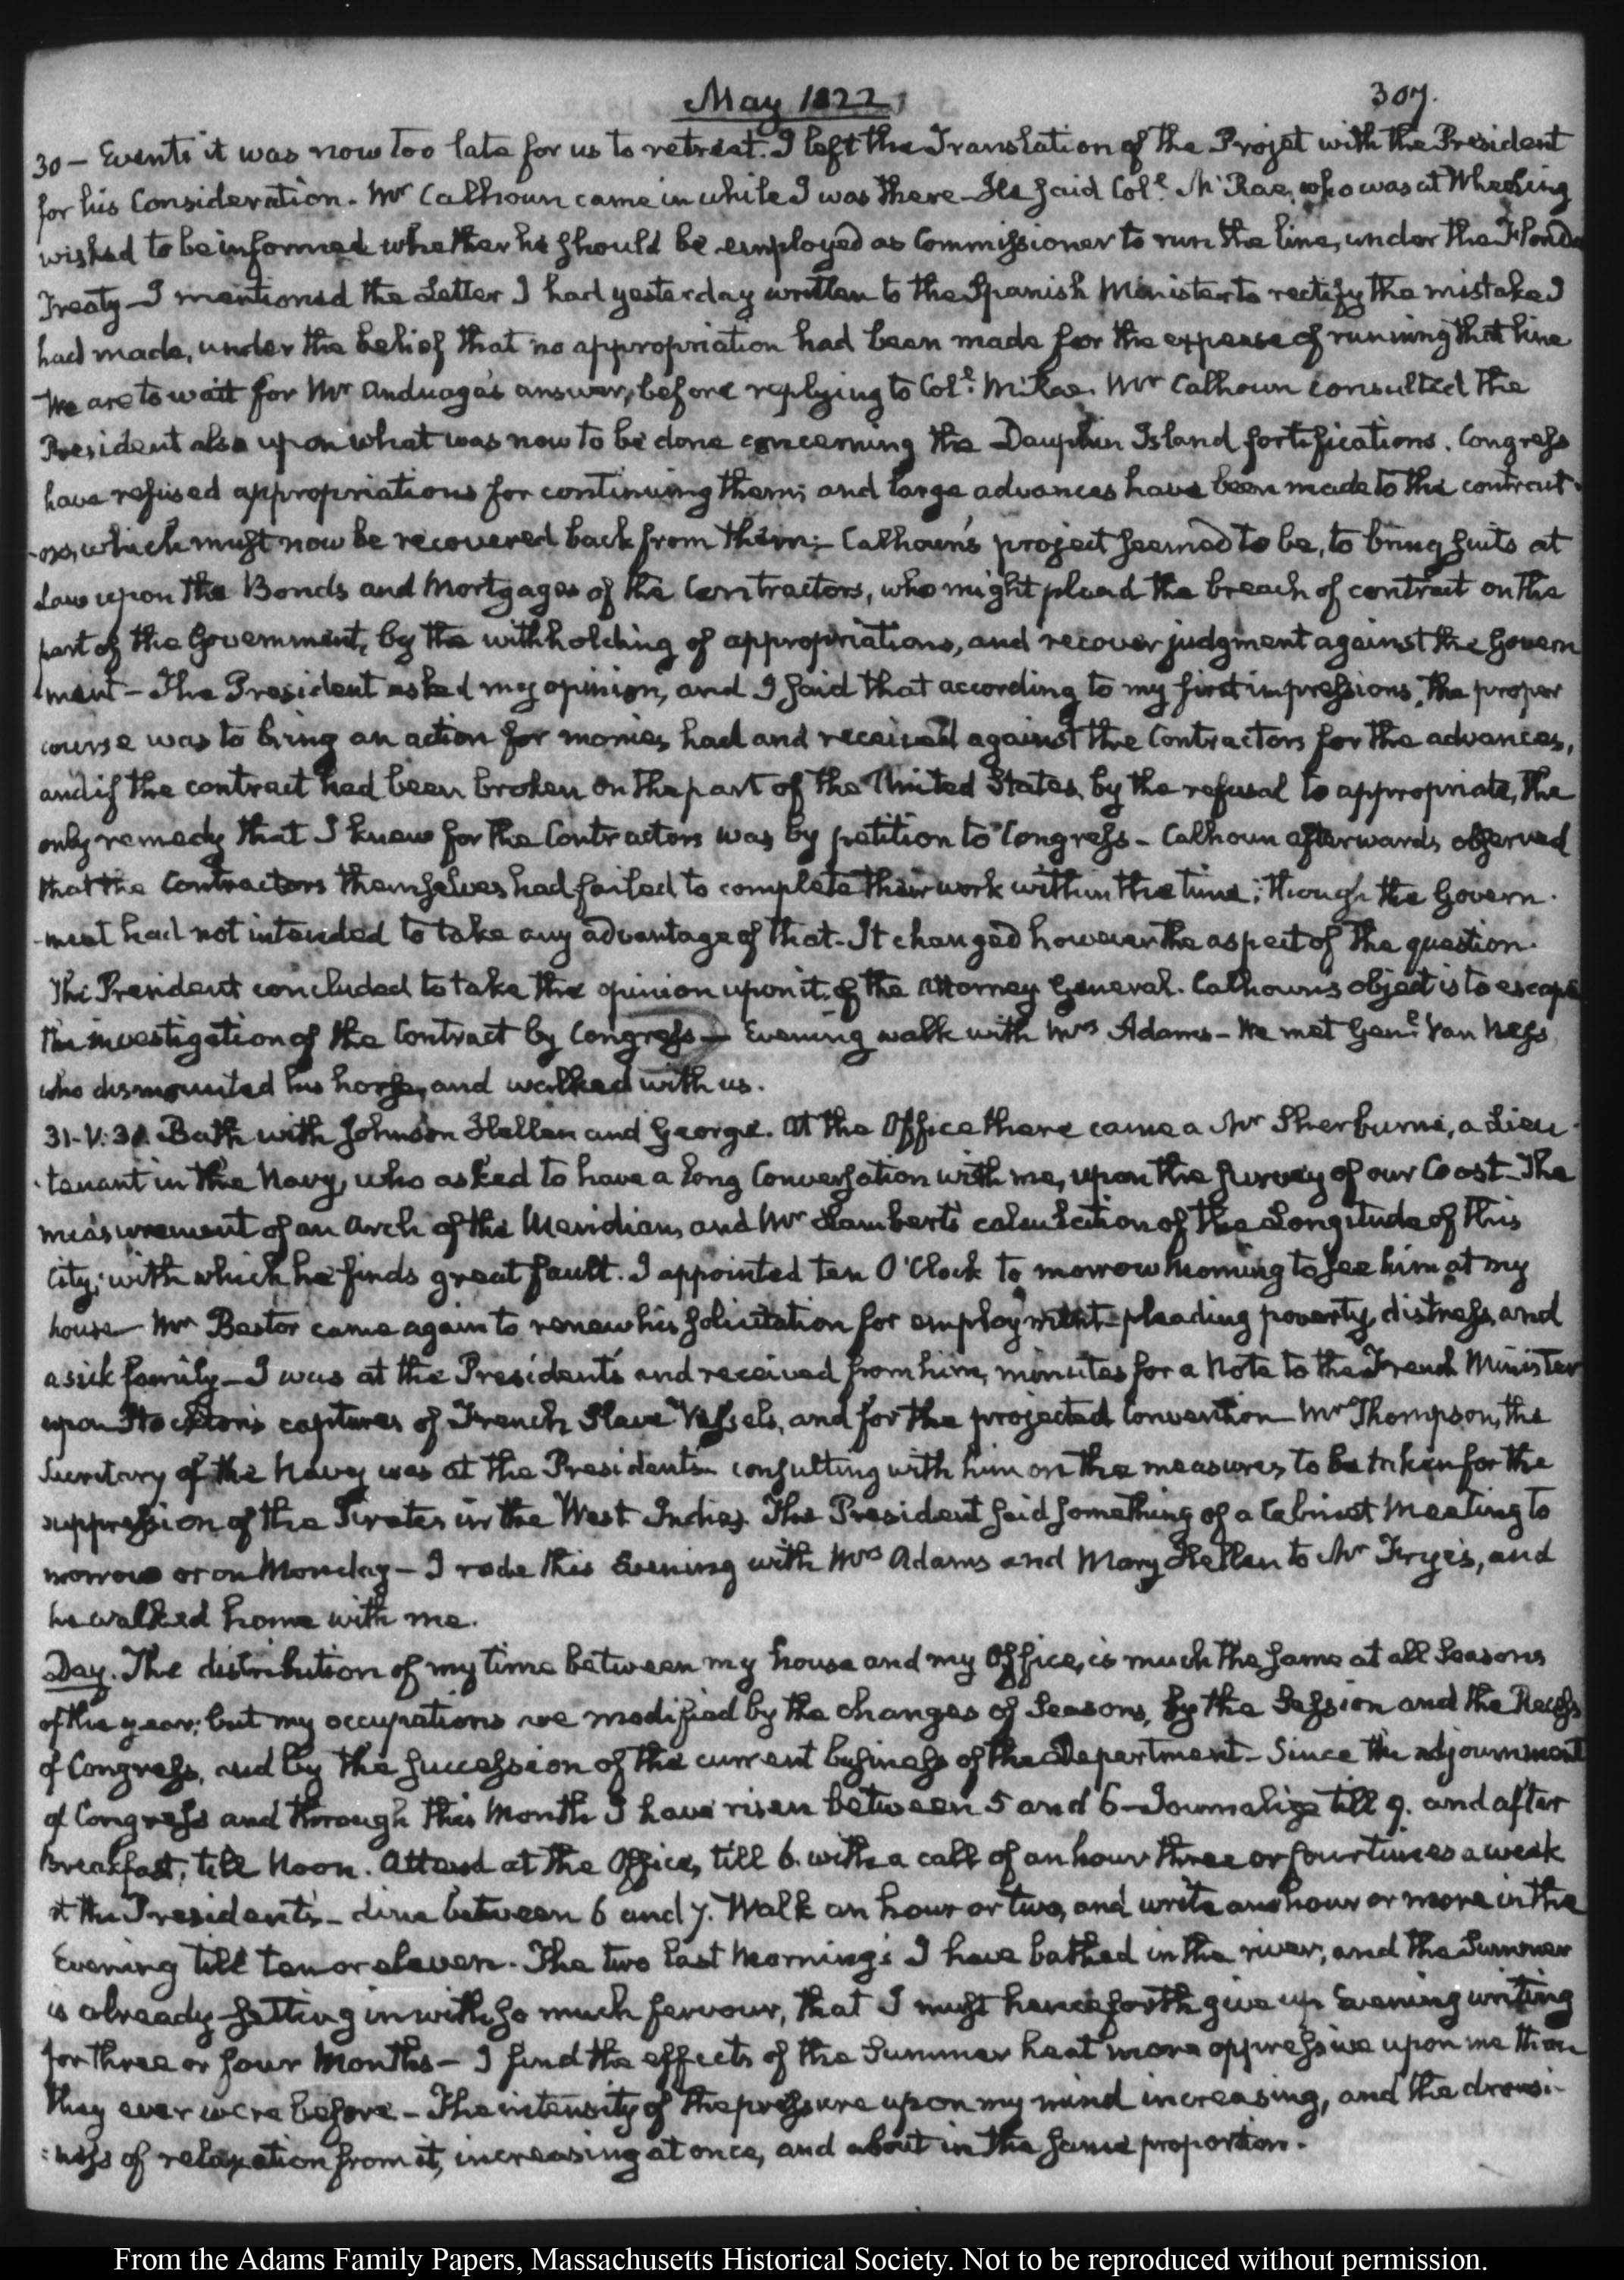 May 1822. 307.
30 – Events it was now too late for us to retreat. I left the Translation of the Projet with the President
for his Consideration. Mr Calhoun came in while I was there – He said Coll. McRae, who was at Wheeling
wished to be informed whether he should be employed as Commissioner to run the line, under the Florida
Treaty – I mentioned the Letter I had yesterday written to the Spanish Minister to rectify the mistake I
had made, under the belief that no appropriation had been made for the expense of running that line
We are to wait for Mr Anduaga's answer, before replying to Coll. McRae. Mr Calhoun consulted the
President also upon what was now to be done concerning the Dauphin Island fortifications. Congress
have refused appropriations for continuing them; and large advances have been made to the contract-
-ors, which must now be recovered back from them; Calhoun's project seemed to be, to bring suits at
Law upon the Bonds and Mortgages of the Contractors, who might plead the breach of contract on the
part of the Government, by the withholding of appropriations, and recover judgment against the Govern
-ment – The President asked my opinion, and I said that according to my first impressions, the proper
course was to bring an action for monies had and received against the Contractors for the advances,
and if the contract had been broken on the part of the United States, by the refusal to appropriate, the
only remedy that I knew for the Contractors was by petition to Congress – Calhoun afterwards observed
that the Contractors themselves had failed to complete their work within the time; though the Govern-
-ment had not intended to take any advantage of that. It changed however the aspect of the question.
The President concluded to take the opinion upon it, of the Attorney General. Calhoun's object is to escape
the investigation of the Contract by Congress – Evening walk with Mrs Adams – We met Genl. Van Ness
who dismounted his horse, and walked with us.
31. V:30. Bath with Johnson Hellen and George. At the Office there came a Mr Sherburne, a Lieu-
-tenant in the Navy, who asked to have a long Conversation with me, upon the survey of our Coast – The
measurement of an Arch of the Meridian, and Mr Lambert's calculation of the Longitude of this
City; with which he finds great fault. I appointed ten O'Clock to morrow morning to see him at my
house – Mr Bestor came again to renew his solicitation for employment – pleading poverty, distress, and
a sick family – I was at the President's and received from him, minutes for a Note to the French Minister
upon Stockton's captures of French Slave Vessels, and for the projected Convention – Mr Thompson, the
Secretary of the Navy was at the President's – consulting with him on the measures to be taken for the
suppression of the Pirates in the West Indies. The President said something of a Cabinet Meeting to
morrow or on Monday – I rode this Evening with Mrs Adams and Mary Hellen to Mr Frye's, and
he walked home with me.
Day. The distribution of my time between my house and my Office, is much the same at all Seasons
of the year; but my occupations are modified by the changes of Seasons, by the Session and the Recess
of Congress, and by the succession of the current business of the Department – Since the adjournment
of Congress and through this Month I have risen between 5 and 6 – Journalize till 9. and after
Breakfast, till Noon. Attend at the Office, till 6. with a call of an hour three or four times a week
at the President's – dine between 6 and 7. Walk an hour or two, and write an hour or more in the
Evening till ten or eleven. The two last Morning's I have bathed in the river, and the Summer
is already setting in with so much fervour, that I must henceforth give up Evening writing
for three or four Months – I find the effects of the Summer heat more oppressive upon me than
they ever were before – The intensity of the pressure upon my mind increasing, and the drowsi-
-ness of relaxation from it, increasing at once, and about in the same proportion.
From the Adams Family Papers, Massachusetts Historical Society. Not to be reproduced without permission.